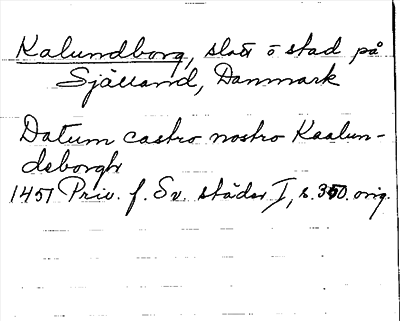 Kalundborg, slott o stad på
Själland, Danmark
Datum castro nostro Kaalun-
deborgh
1451 Priv. f. Sv. städer I, s. 350. orig.